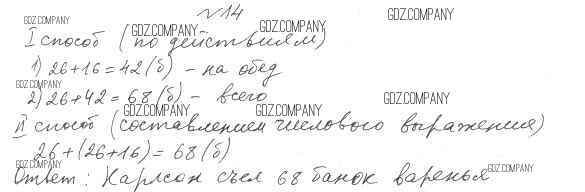 №14
I способ (по действиям)
1) 26+16=42(б) - на обед
2) 26+42=68(б) - всего
II способ (составлением числового выражения)
26+(26+16)=68(б)
Ответ: Карлсон съел 68 банок варенья
GDZ.COMPANY
GDZ.COMPANY
GDZ.COMPANY
GDZ.COMPANY
GDZ.COMPANY
GDZ.COMPANY
GDZ.COMPANY
GDZ.COMPANY
GDZ.COMPANY
GDZ.COMPANY
GDZ.COMPANY